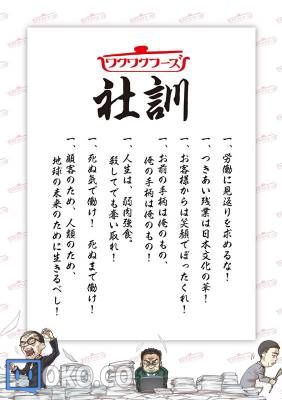 ワクワクフーズ
社訓
一、労働に見返りを求めるな！
一、つきあい残業は日本文化の華！
一、お客様からは笑顔でぼったくれ！
一、お前の手柄は俺のもの、
俺の手柄は俺のもの！
一、人生は、弱肉強食、
殺してでも奪い取れ！
一、死ぬ気で働け！　死ぬまで働け！
一、顧客のため、人類のため、
地球の未来のために生きるべし！